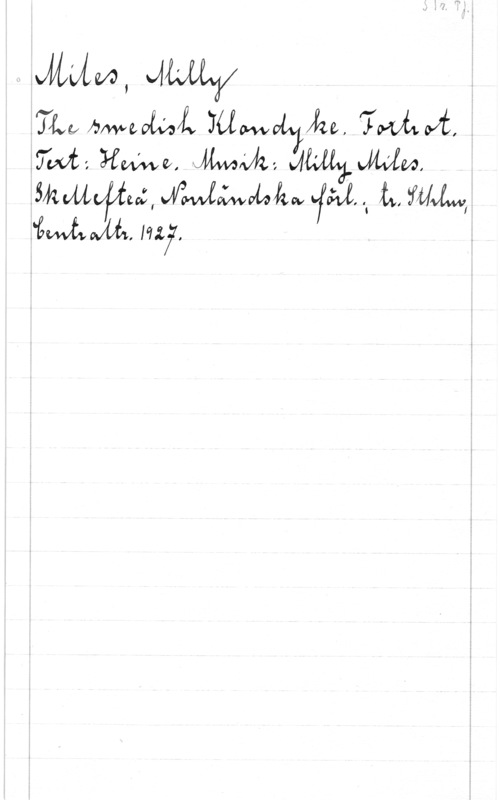 Miles, Milly
The swedish Klondyke. Foxtrot.
Text: Heine. Musik: Milly Miles.
Skellefteå, Norrländska förl.; tr. Sthlm,
Centraltr. 1927.